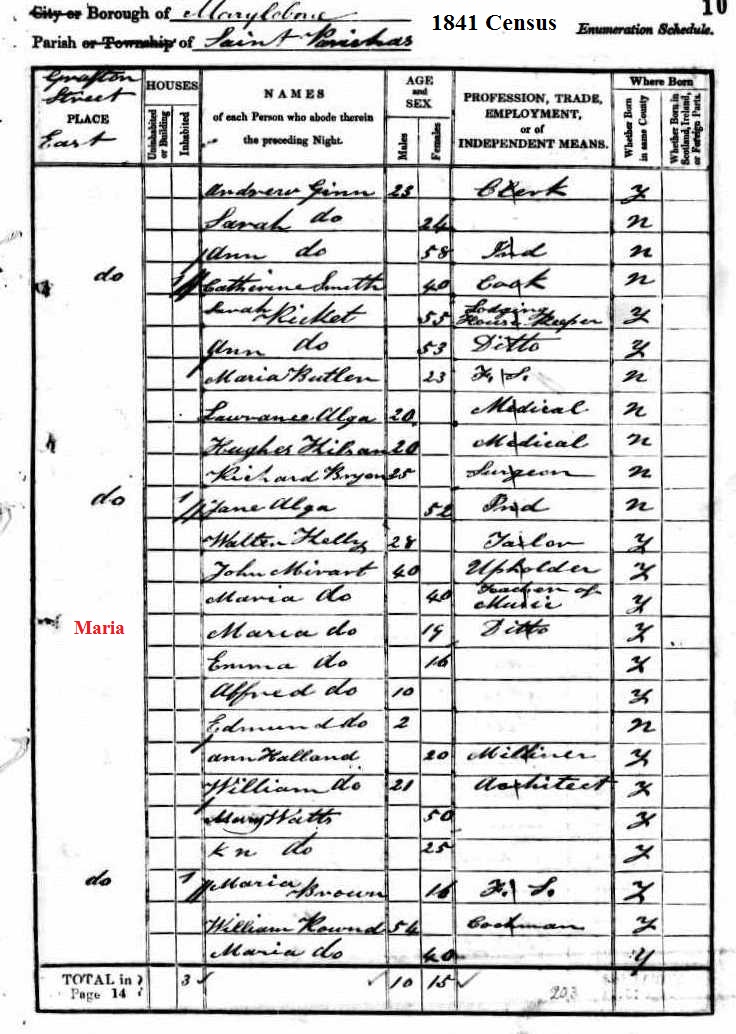 City or Borough of Marylebone
10
1841 Census
Parish or Township of Saint Pancras
Enumeration Schedule.
Grafton Street East
PLACE
HOUSES
Uninhabited or Building
Inhabited
NAMES
of each Person who abode therein
the preceding Night.
AGE
and
SEX
Males
Females
PROFESSION, TRADE,
EMPLOYMENT,
or of
INDEPENDENT MEANS.
Where Born
Whether Born in same County
Whether Born in Scotland, Ireland, or Foreign Parts.
Andrew Ginn 25 Clerk Y
Sarah do 24 N
Ann do 58 Ind N
do 1 Catherine Smith 40 Cook N
Sarah Ricket 55 Lodging House Keeper Y
Ann do 53 Ditto Y
Maria Butler 23 F. S. N
Lawrance Alga 20 Medical N
Hughes 20 Medical N
Richard Bryon 25 Surgeon N
do 1 Jane Alga 52 Ind N
Walter Kelly 28 Tailor Y
John Mivart 40 Upholder Y
Maria do 40 Teacher of Music Y
Maria
Maria do 19 Ditto Y
Emma do 16 Y
Alfred do 10 Y
Edmund do 2 N
Ann Halland 20 Milliner Y
William do 21 Architect Y
Mary Watts 50 Y
K n do 25 Y
do 1 Maria Brown 16 F. S. Y
William Rownd 54 Cochman Y
Maria do 40 Y
TOTAL in
Page 14
3
10 15
203